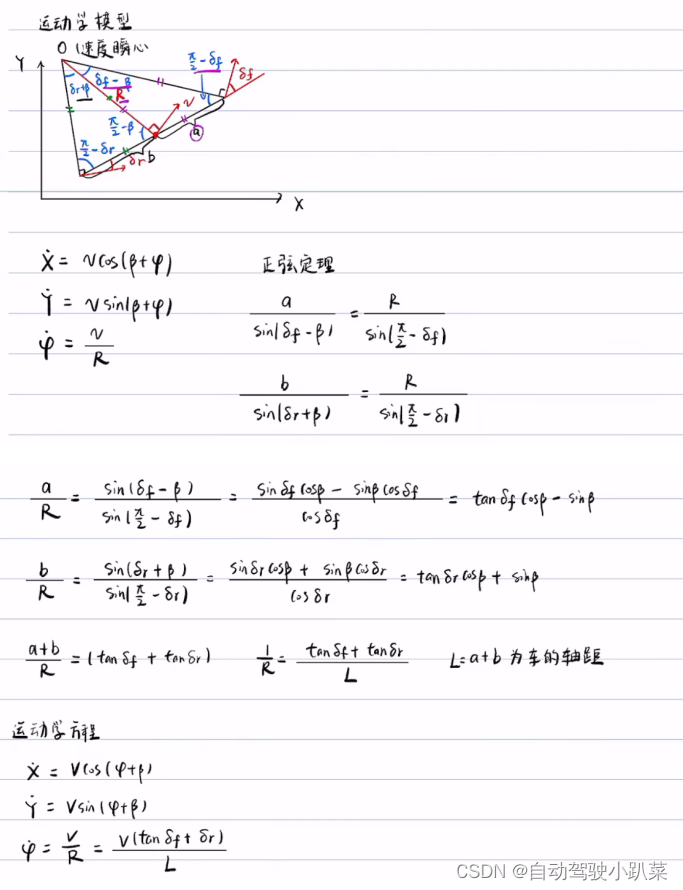 运动学模型
O (速度瞬心
Y
δr+β
δf-β
R
π/2-δf
δf
v
π/2-β
a
π/2-δr
δr
b
X
Ẋ = vcos(β+φ)
正弦定理
Ẏ = vsin(β+φ)
a/sin(δf-β) = R/sin(π/2-δf)
φ̇ = v/R
b/sin(δr+β) = R/sin(π/2-δr)
a/R = sin(δf-β)/sin(π/2-δf) = (sinδf cosβ - sinβ cosδf)/cosδf = tanδf cosβ - sinβ
b/R = sin(δr+β)/sin(π/2-δr) = (sinδr cosβ + sinβ cosδr)/cosδr = tanδr cosβ + sinβ
(a+b)/R = (tanδf + tanδr) 1/R = (tanδf + tanδr)/L L=a+b 为车的轴距
运动学方程
Ẋ = Vcos(φ+β)
Ẏ = Vsin(φ+β)
φ̇ = V/R = V(tanδf + δr)/L
CSDN @自动驾驶小趴菜